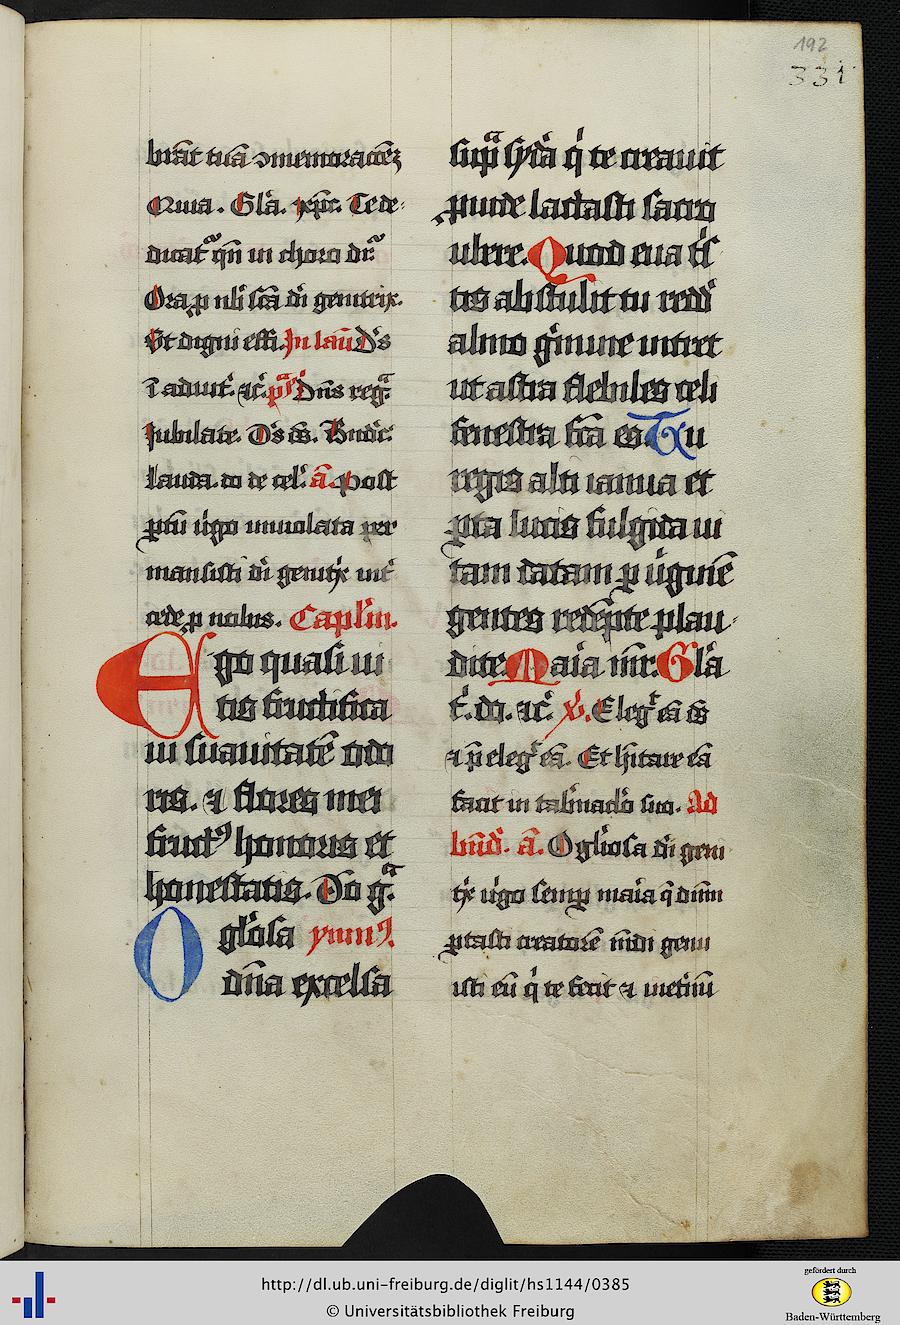 192
331
brāt tuā ɔmemoracōeꝫ
Quia. Gl'a. xp̄e. Te de
dicat' qn̄ in choro dr̄.
Ora ꝓ nb̄ sc̄a di genitrix.
Vt digni effi. In laud' D's
ī adiut'. ⁊c̄. ps' Dn̄s reg.
Jubilate. D's ds. Bndc̄.
Lauda. do de cel'. ā. Post
ꝑtū v'go inuiolata per
mansisti di genit'x int'
cede ꝓ nobis. Capl'm.
Ego quasi ui
tis fructifica
ui suauitatē odo
ris. ⁊ flores mei
fruct⁹ honoris et
honestatis. Do gͣ.
O gl'osa ymn⁹.
dn̄a excelsa
supͣ syd'a q' te creauit
ꝓuide lactasti sacro
ubere. Quod eua t's
tis abstulit tu redd'
almo g'mine intret
ut astra flebiles celi
fenestra fc̄a es. Tu
regis alti ianua et
ꝑta lucis fulgida ui
tam datam ꝑ v'ginē
gentes redēpte plau
dite Maria m̄r. Gl'a
t'. do. ⁊c̄. v. Eleg' eā ds
⁊ p̄eleg' eā. Et h'itare eā
facit in tab'nac'lo suo. Ad
bn̄d'. ā. O gl'iosa di geni
t'x v'go semꝑ maria q̄ dn̄m
ꝑtasti creatorē mūdi genu
isti eū q' te fecit ⁊ in et'nū
http://dl.ub.uni-freiburg.de/diglit/hs1144/0385
© Universitätsbibliothek Freiburg
gefördert durch
Baden-Württemberg